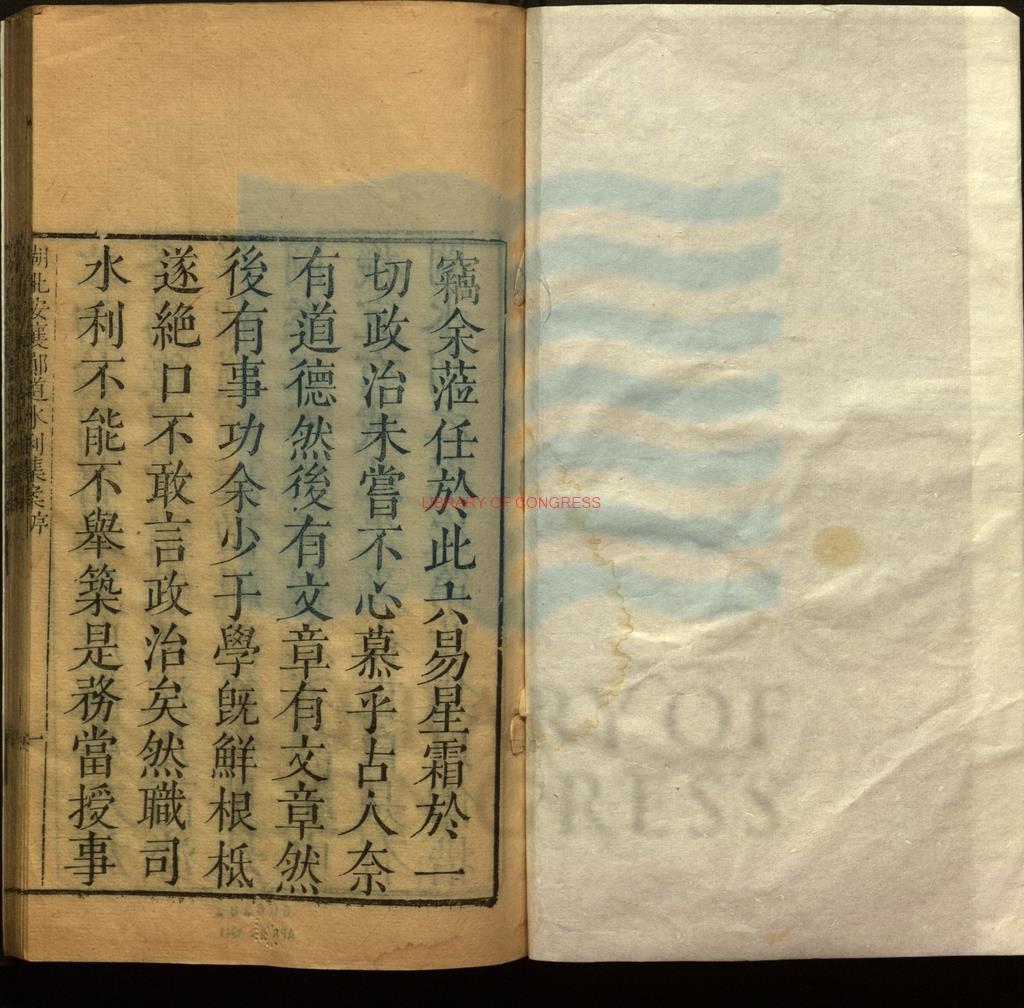 竊余蒞任於此六易星霜於一
切政治未嘗不心慕乎古人奈
有道德然後有文章有文章然
後有事功余少于學旣鮮根柢
遂絕口不敢言政治矣然職司
水利不能不舉築是務當授事
湖北安襄鄖道水利集案序
一
LIBRARY OF CONGRESS